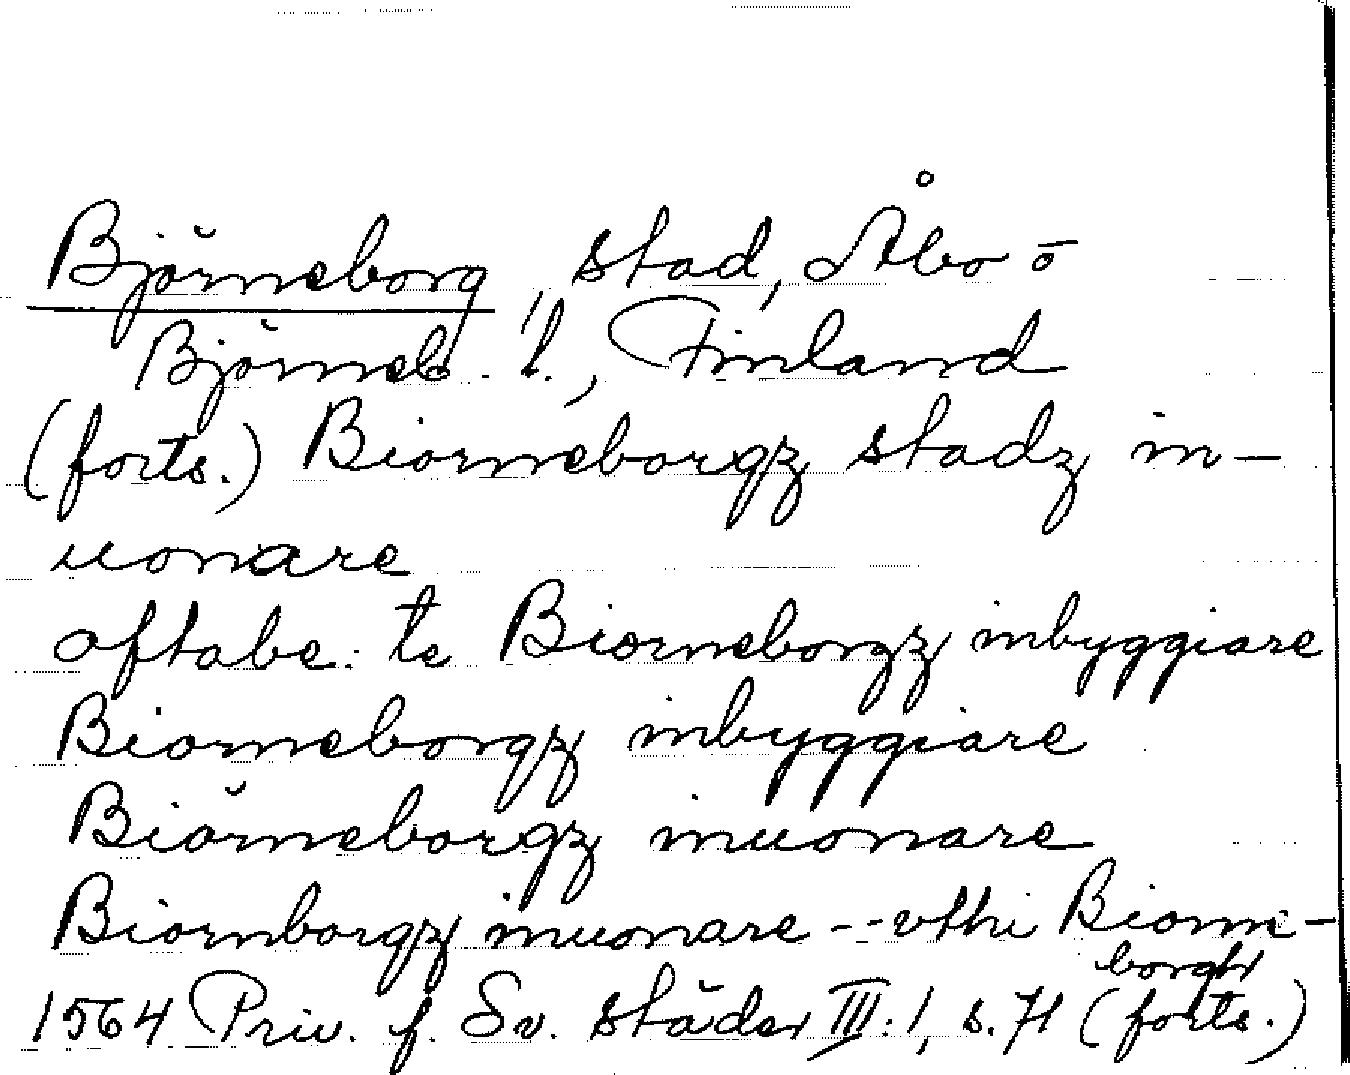 Björneborg, stad, Åbo o
Björneb. l., Finland
(forts.) Biorneborgz stadz in-
uonare
oftabe: te Biorneborgz inbyggiare
Biorneborgz inbyggiare
Biörneborgz inuonare
Biornborgz inuonare -- vthi Biorne-
borgh
1564 Priv. f. Sv. städer III:1, s. 71 (forts.)